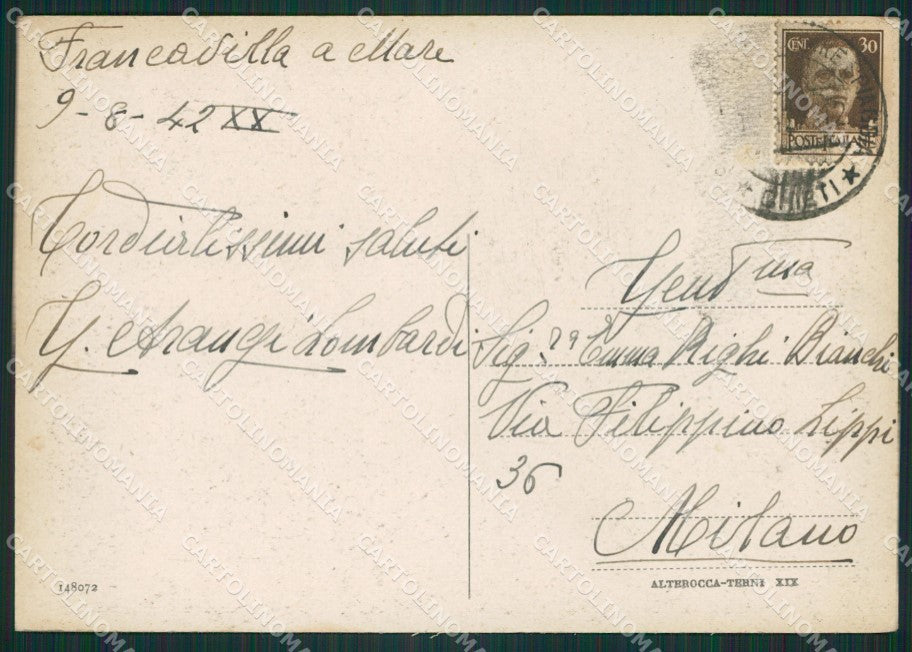 Francavilla a Mare
9-8-42 XX
Cordialissimi saluti
Y. Arangi Lombardi
CENT. 30
POSTE ITALIANE
CHIETI
Gent.ma
Sig.ra Emma Righi Bianchi
Via Filippino Lippi
36
Milano
148072
ALTEROCCA-TERNI XIX
CARTOLINOMANIA